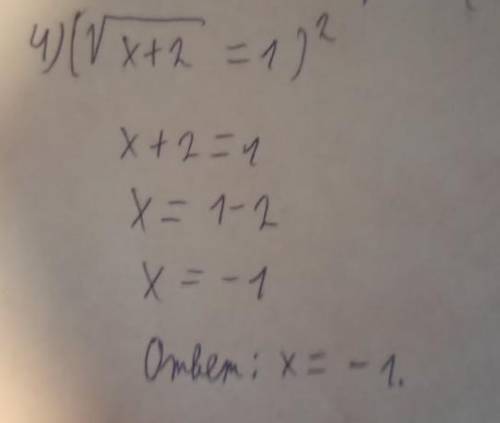 4) (√x+2 = 1)²
x+2=1
x = 1-2
x = -1
Ответ: x = -1.